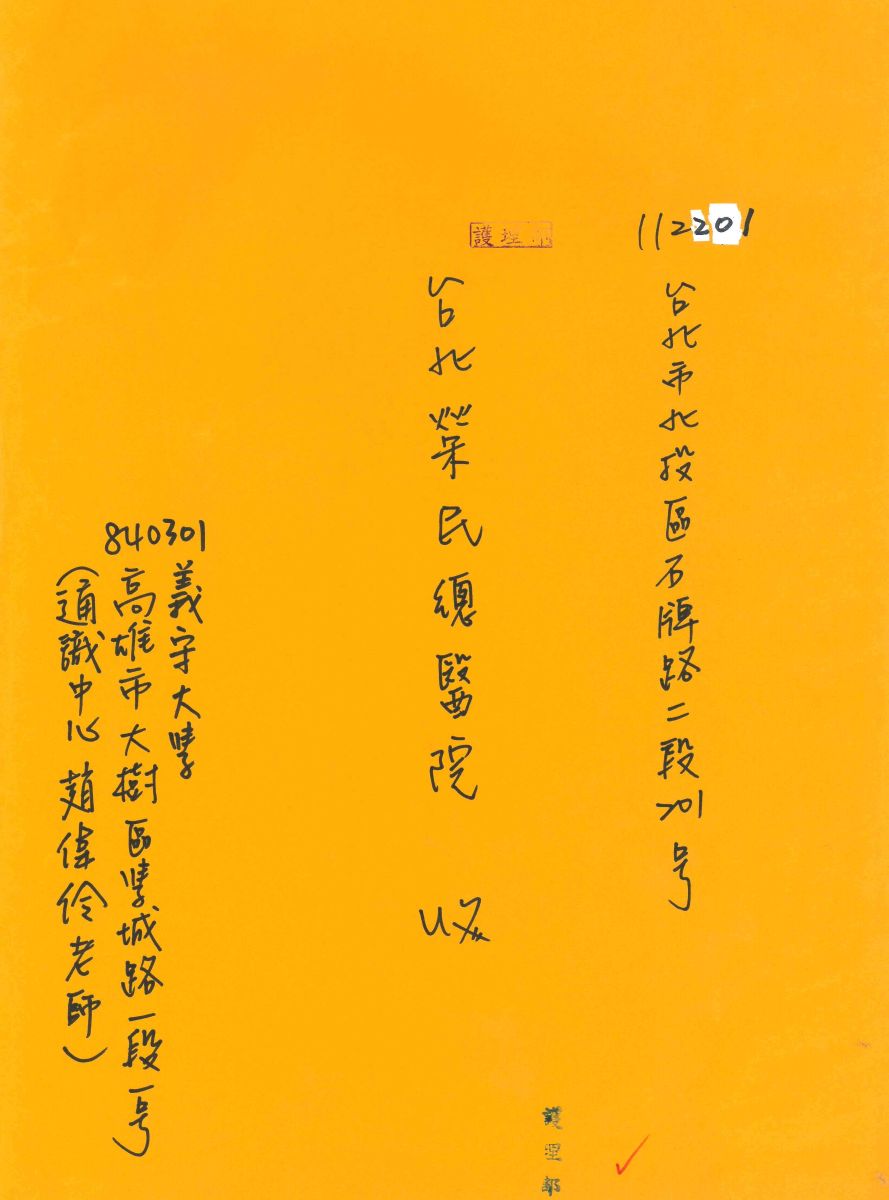 112201
台北市北投區石牌路二段201号
護理部
台北榮民總醫院 收
840301
義守大學
高雄市大樹區學城路一段一号
(通識中心 趙偉伶老師)
護理部